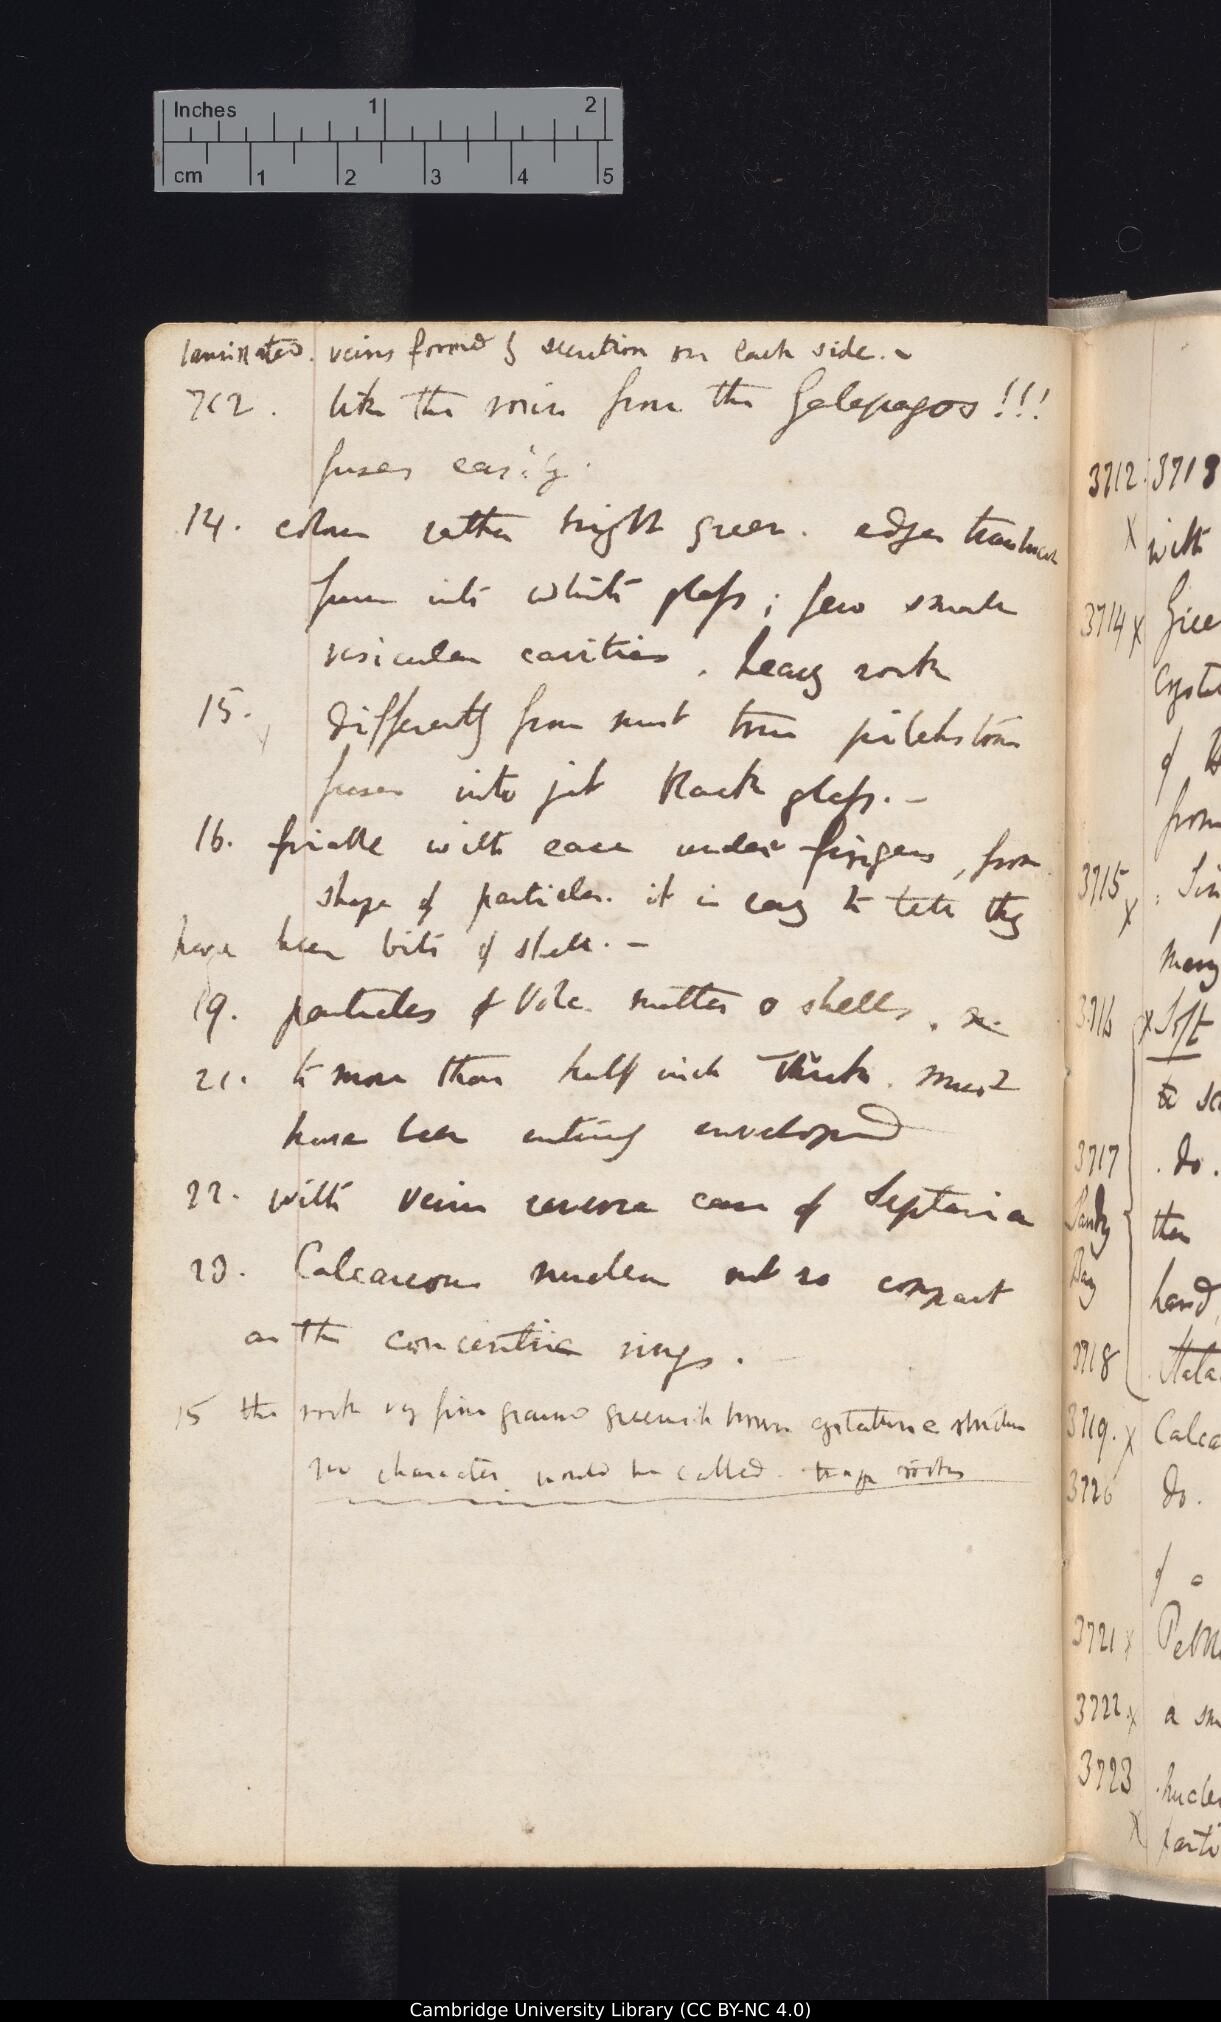 Inches 1 2
cm 1 2 3 4 5
laminated. veins formed by secretion on each side. –
712. like the vein from the Galapagos!!!
fuses easily.
14. colour rather bright green. edges translucent
fuses into white glass; few small
vesicular cavities. heavy rock
15. differently from most true pitchstone
fuses into jet black glass. –
16. friable with ease under fingers, from
shape of particles it is easy to tell they
have been bits of shell. –
19. particles of Volc. matter & shells.
21. to more than half inch thick. must
have been entirely enveloped
22. with veins reverse case of Septaria
23. Calcareous nucleus not so compact
as the concentric rings.
15 the rock very fine grained greenish brown structure
no character would be called trap rocks
3712. 3713
with
3714 x Gree
Cryst
of
from
3715 x
many
3716 x Soft
3717 do.
Sandy
Bay
then
hard,
3718
3719. x Calca
3720 do.
of
3721 x
3722. x a sm
3723 Nucle
x parti
Cambridge University Library (CC BY-NC 4.0)